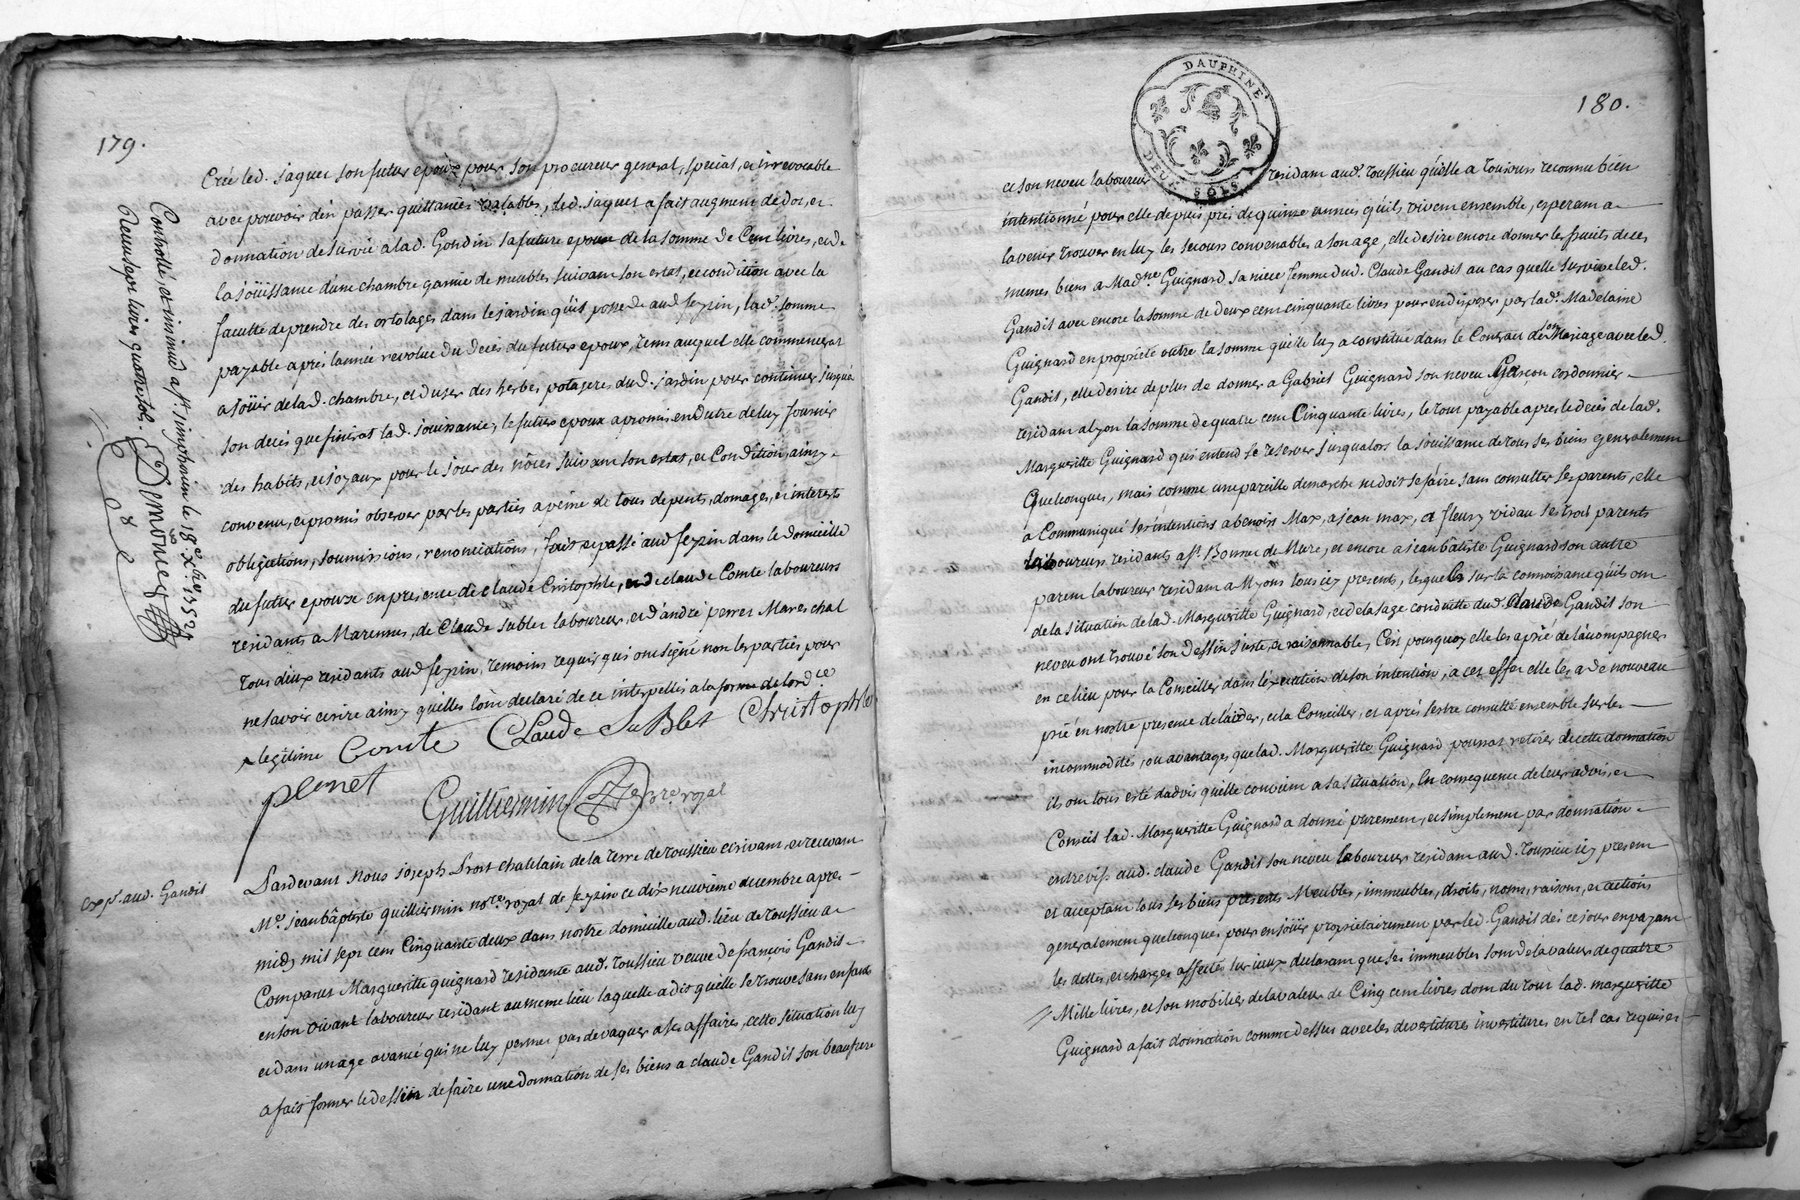 179.
Créé led. jaques son futur epoux pour son procureur general, special, et irrevocable
avec pouvoir d'en passer quittances valables, led. jaques a fait augment de dot, et
donnation de survie a lad. Gondin sa future epouse de la somme de Cent livres, et de
la joüissance d'une chambre garnie de meubles suivant son estat, et condition avec la
faculté de prendre des ortolages dans le jardin qu'il possede aud. feyzin, lad. somme
payable apres l'année revolue du deces du futur epoux, tems auquel elle commencerat
a joüir de lad. chambre, et d'user des herbes potageres dud. jardin pour continuer jusqua
son deces que finirat lad. jouissance, le futur epoux a promis en outre de luy fournir
des habits, et joyaux pour le jour des nôces suivant son estat, et Condition, ainsy
convenu, et promis observer par les parties a peine de tous depents, domages, et interests
obligations, soumissions, renonciations, fait et passé aud. feyzin dans le domicille
du futur epoux en presence de Claude Cristophle, et de claude Comte laboureurs
residants a Marennes, de Claude sublet laboureur, et d'andré perret Mareschal
tous deux residants aud. feyzin, temoins requis qui ont signé non les parties pour
ne savoir ecrire ainsy quelles l'ont declaré de ce interpellés a la forme de lord.ce
legitime Comte Claude SuBlet Christophle
peret
Guilliermin no.re royal
Controllé, et insinué a st. simphorien le 18e. xbre 1752
Reçu sept livres quatre sols.
Demônei
exp. aud. Gandit
Pardevant Nous joseph Prost chatelain de la terre de toussieu ecrivant, et recevant
Me. jean bâptiste guilliermin no.re royal de feyzin ce dix neuvième decembre apres
midy mil sept cent Cinquante deux dans nostre domicille aud. lieu de toussieu a
Comparut Margueritte guignard residante aud. toussieu veuve de francois Gandit
en son vivant laboureur residant au meme lieu laquelle a dit quelle se trouve sans enfants
et dans un age avancé qui ne luy permet pas de vaquer a ses affaires, cette situation luy
a fait former le dessein de faire une donnation de ses biens a claude Gandit son beaufrere
180.
DAUPHINE
DEUX SOLS
et son neveu laboureur residant aud. toussieu qu'elle a toujours reconnu bien
intentionné pour elle depuis près de quinze années qu'ils vivent ensemble, esperant a
lavenir trouver en luy les secours convenables a son age, elle desire encore donner les fruits de ces
memes biens a Mad.ne Guignard sa niece femme dud. Claude Gandit au cas quelle survive led.
Gandit avec encore la somme de deux cent cinquante livres pour en disposer par lad. Madelaine
Guignard en propriété outre la somme quelle luy a constitué dans le Contract de Mariage avec led.
Gandit, elle desire de plus de donner a Gabriel Guignard son neveu Garçon cordonnier
residant a lyon la somme de quatre cent Cinquante livres, le tout payable apres le deces de lad.
Margueritte Guignard qui entend se reserver jusqualors la jouissance de tous ses biens generalement
Quelconques, mais comme une pareille demarche ne doit se faire sans consulter ses parents, elle
a Communiqué ses intentions a benoist Max, a jean max, et fleury vidau ses trois parents
laboureurs residants a st. Bonnet de Mure, et encore a jean bâtiste Guignard son autre
parent laboureur residant a Myons tous icy presents, lesquels sur la connoissance qu'ils ont
de la situation de lad. Margueritte Guignard, et de la sage conduitte dud. Claude Gandit son
neveu ont trouvé son dessin juste, et raisonnable, C'est pourquoy elle les a prié de l'acompagner
en ce lieu pour la Conseiller dans l'exécution de son intention, a cet effet elle les a de nouveau
prié en nostre presence de l'aider, et la Conseiller, et après s'estre consulté ensemble sur les
incommodités, ou avantages que lad. Margueritte Guignard pourrat retirer de cette donnation
ils ont tous esté dadvis quelle convient a sa situation, En consequence de leur advis, et
Conseil lad. Margueritte Guignard a donné purement, et simplement par donnation
entrevifs aud. claude Gandit son neveu laboureur residant aud. toussieu icy present
et acceptant tous ses biens presents Meubles, immeubles, droits, noms, raisons, et actions
generalement quelconques pour en joüir proprietairement par led. Gandit dès ce jour en payant
les dettes, et charges affectés sur iceux declarant que ses immeubles sont de la valeur de quatre
Mille livres, et son mobilier de la valeur de Cinq cent livres dont du tout lad. margueritte
Guignard a fait donnation comme dessus avec les devestitures investitures en tel cas requises